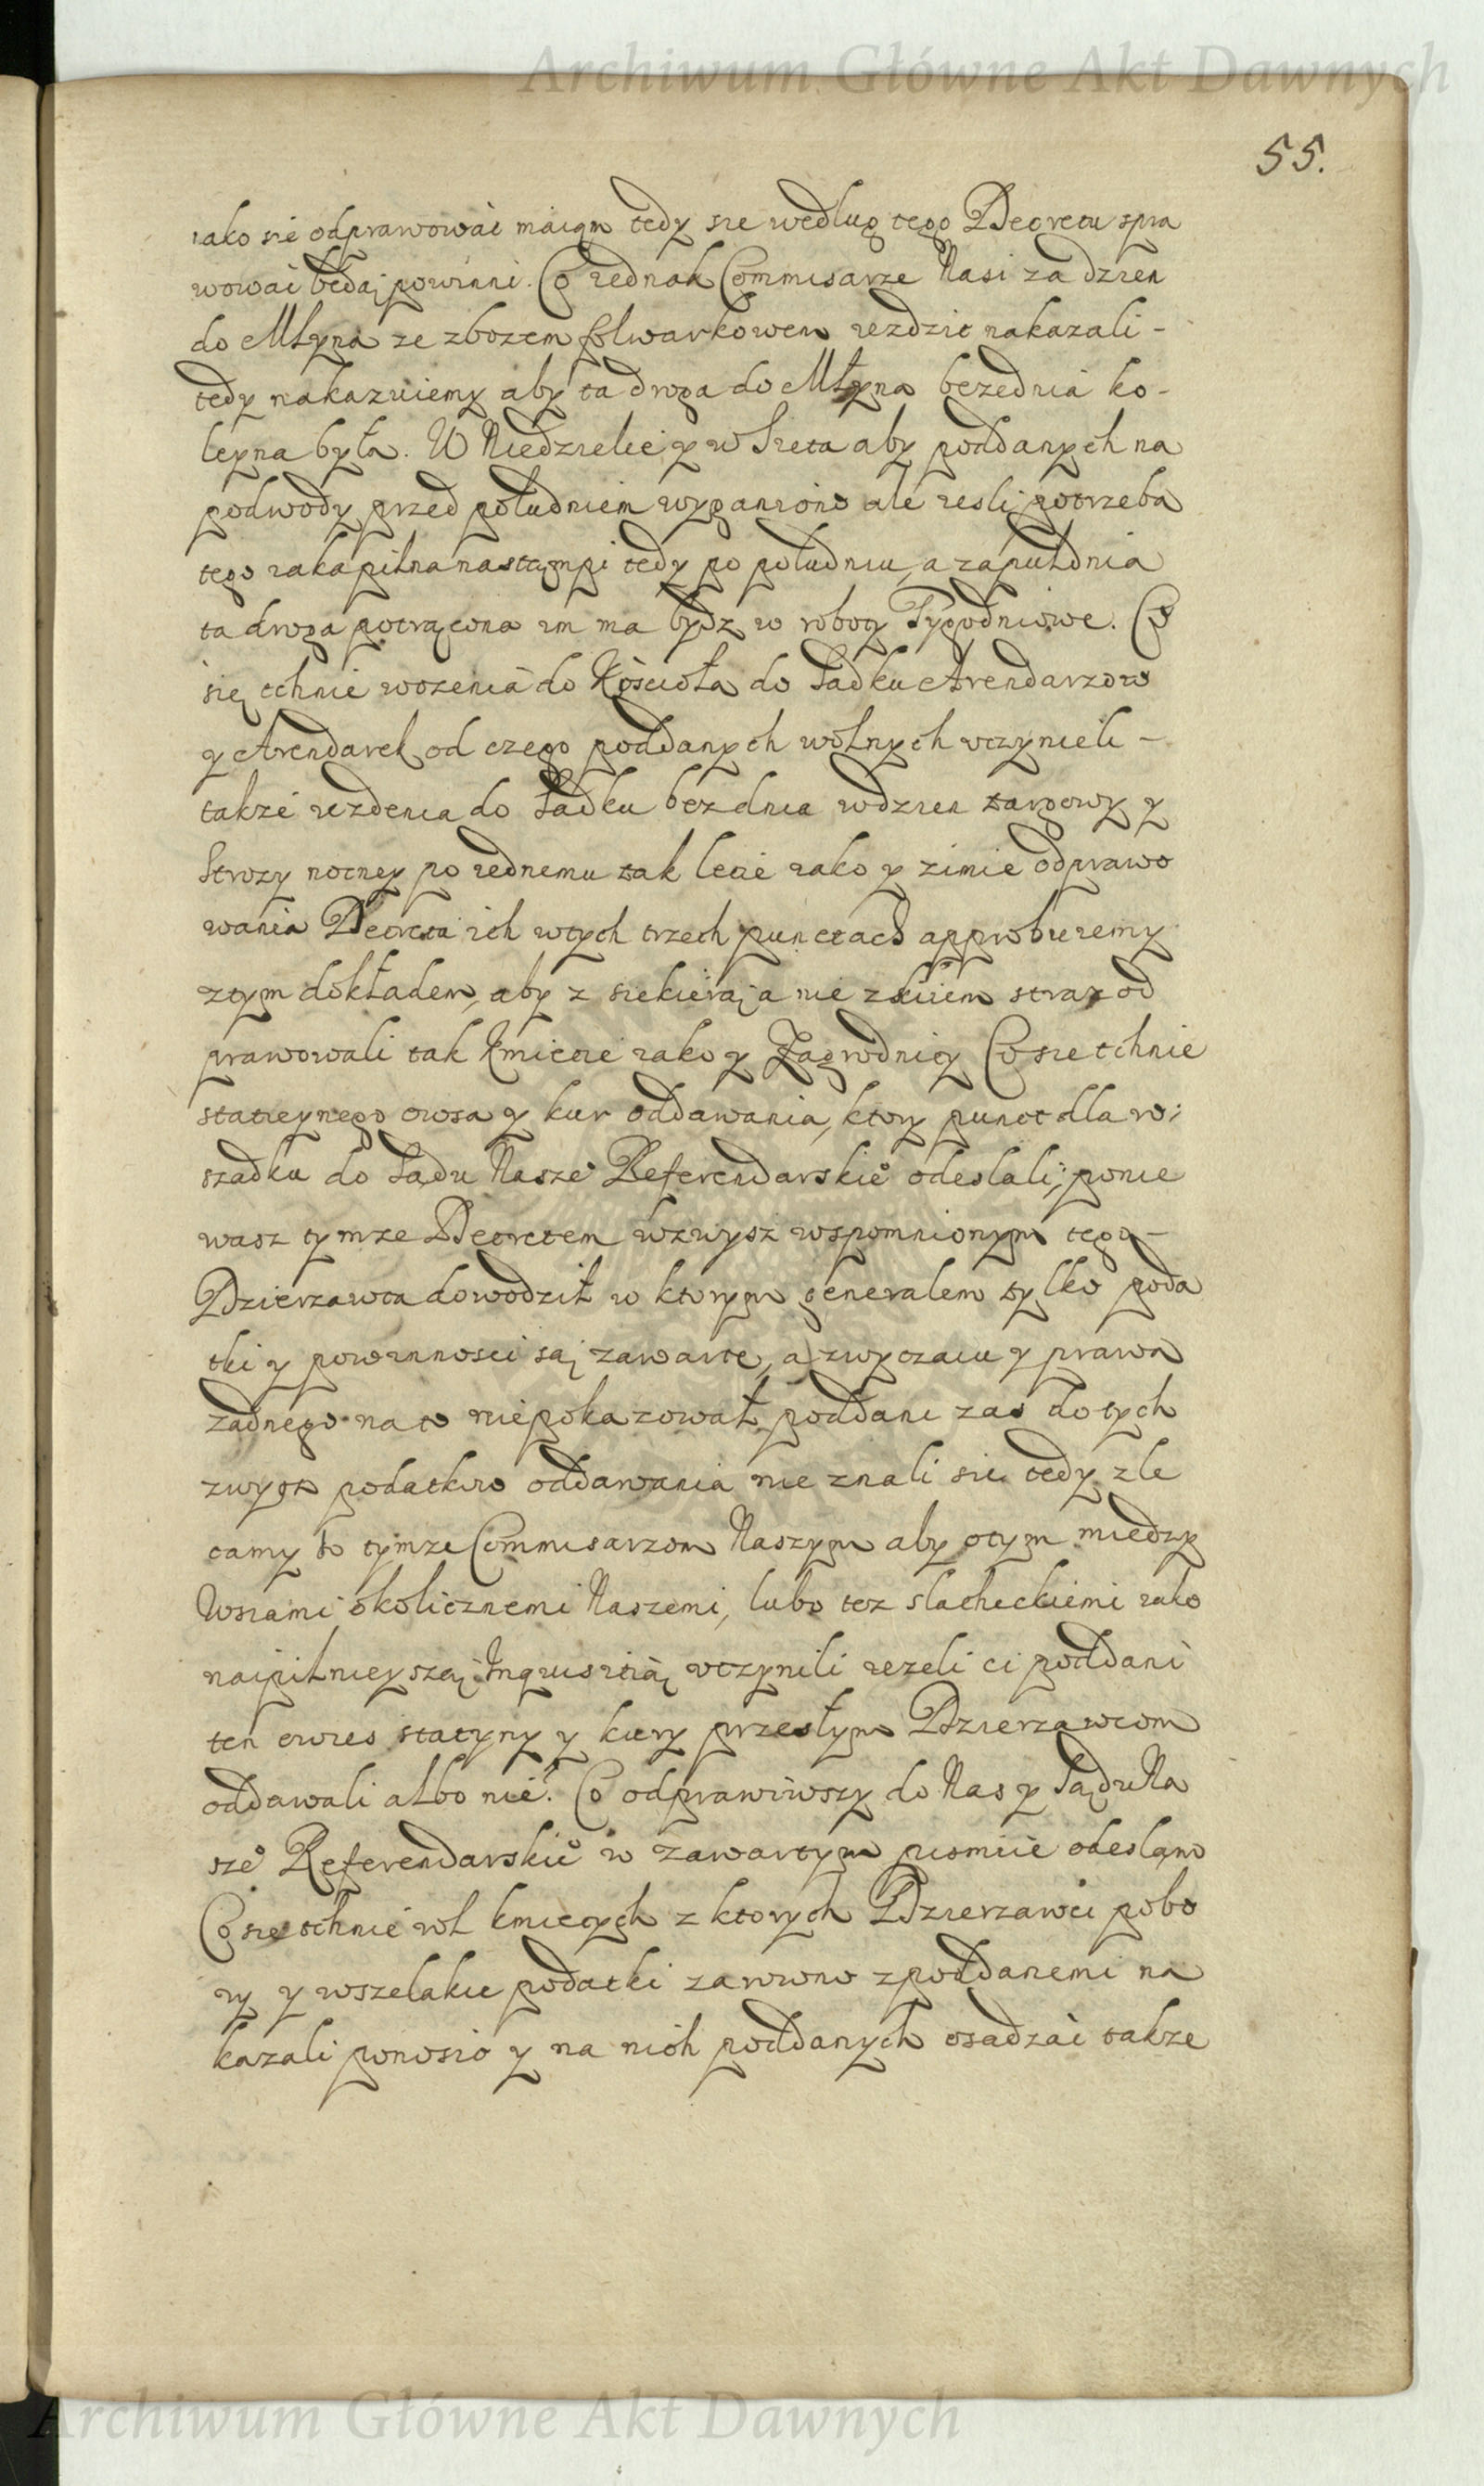 Archiwum Główne Akt Dawnych
55.
iako się odprawować maią tedy sie według tego Decretu spra
wować będą powinni. Co iednak Commisarze Nasi za dzien
do Młyna ze zbozem folwarkowem iezdzic nakazali -
tedy nakazuiemy aby ta droga do Młyna bezednia ko-
leyna była. W Niedziele y w Swieta aby poddanych na
podwody przed południem wyganiono ale iesli potrzeba
tego iaka pilna nastąmpi tedy po południu, a za puł dnia
ta droga potrącona im ma bydz w roboty Tygodniowe. Co
się tchnie wozenia do Kościoła do Ladku Arendarzow
y Arendarek od czego poddanych wolnych uczynieli -
takze iezdenia do Ladku bez dnia w dzien targowy y
Strozy nocney po iednemu tak lecie iako y zimie odprawo
wania Decreta ich w tych trzech punctach approbuiemy
z tym dokładem, aby z siekierą a nie z kiiem straz od
prawowali tak Kmiecie iako y Zagrodnicy Co sie tchnie
stacieynego owsa y kur oddawania, ktory punct dla ro;
szadku do Sądu Nasze° Referendarskie° odeslali; ponie
wasz tymze Decretem wzwysz wspomnionym tego -
Dzierzawca dowodził w ktorym generalem tylko poda
tki y powinnosci są zawarte, a zwyczaiu y prawa
zadnego na to niepokazował, poddani zas do tych
zwysz podatkow oddawania nie znali sie tedy zle
camy to tymze Commisarzom Naszym aby o tym miedzy
Wsiami okolicznemi Naszemi, lubo tez slacheckiemi iako
naipilnieyszą Inquisitią uczynili iezeli ci poddani
ten owies stacyny y kury przesłym Dzierzawcom
oddawali albo nie? Co odprawiwszy do Nas y Sądu Na
sze° Referendarskie° w zawartym pismie odesląm
Co sie tchnie rol kmiecych z ktorych Dzierzawci pobo
ry y wszelakie podatki zarowno z poddanemi na
kazali ponosić y na nich poddanych osadzać takze
Archiwum Główne Akt Dawnych